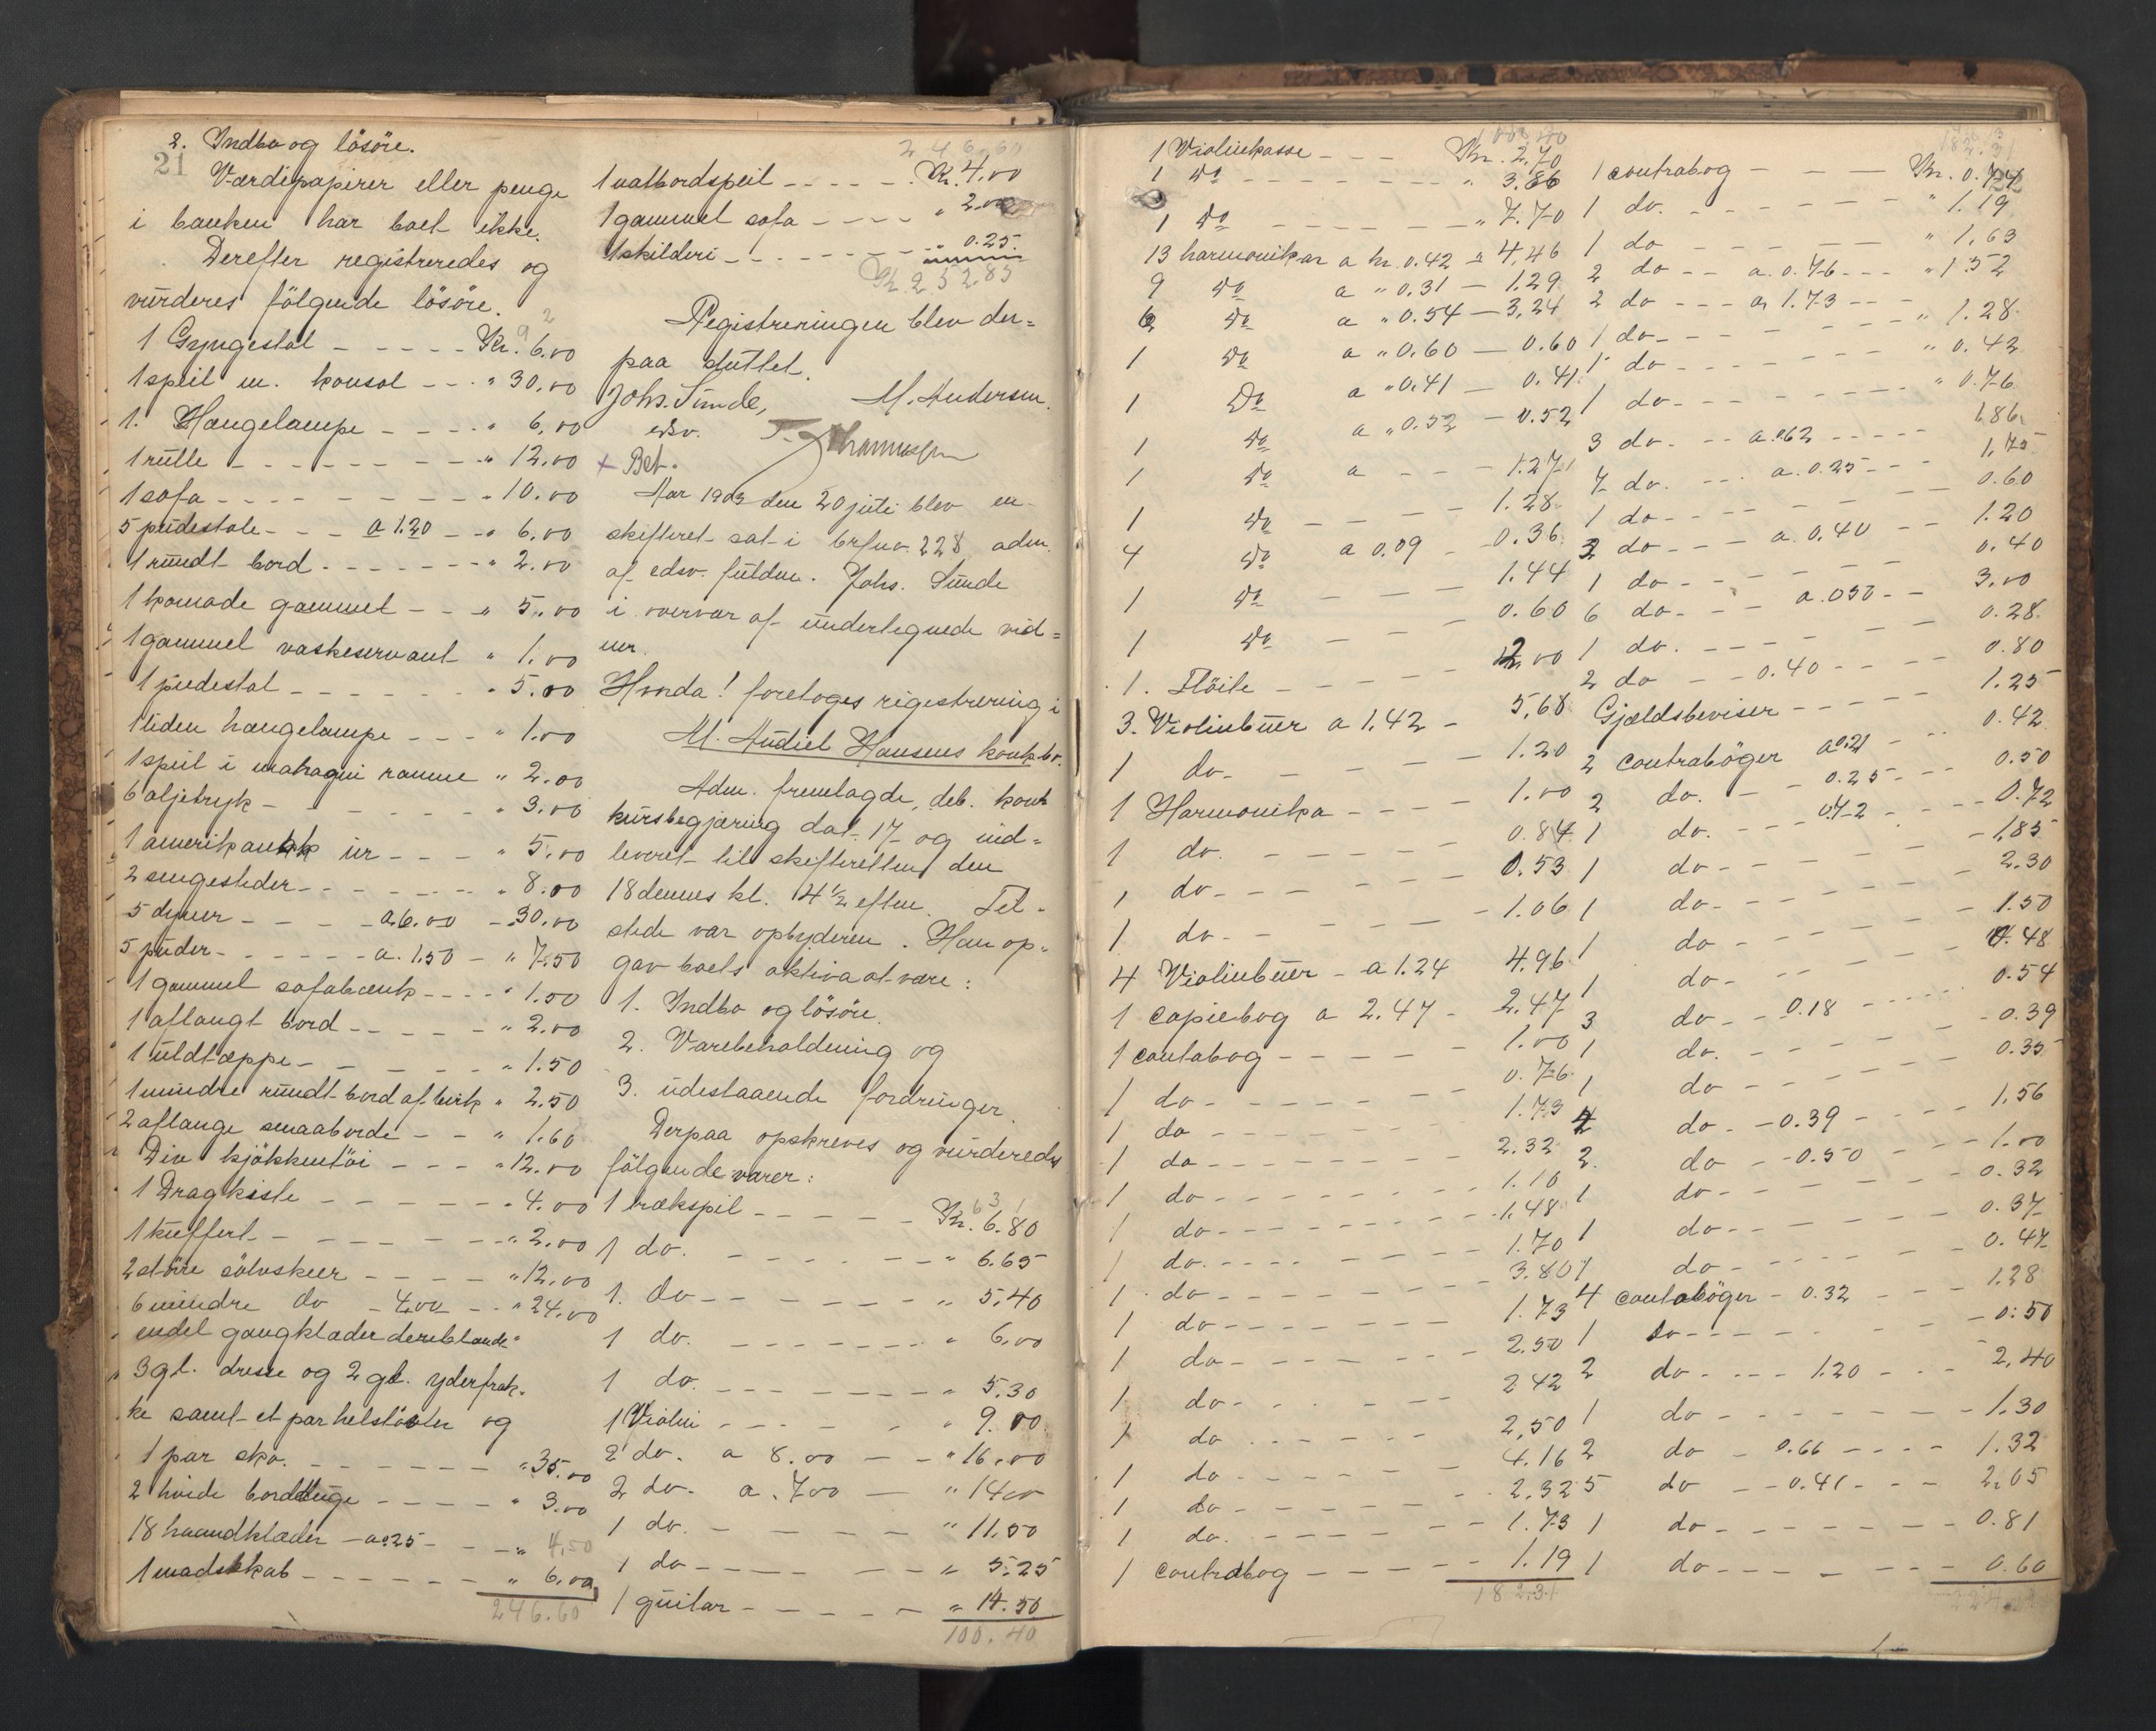 21
2. Indbo og lösöre.
Værdipapirer eller penge
i banken har boet ikke.
Derefter registreredes og
vurderes fölgende lösöre.
1 Gyngestol - - - - - Kr. 6.00
1 speil m. konsol - - - " 30.00
1. Hængelampe - - - - " 6.00
1 rulle - - - - - - - " 12.00
1 sofa - - - - - - - - " 10.00
5 pudestole - - - a 1.20 - - " 6.00
1 rundt bord - - - - - - " 2.00
1 komode gammel - - - " 5.00
1 gammel vaskeservant " 1.00
1 pidestal - - - - - - " 5.00
1 liden hængelampe - - - " 1.00
1 speil i mahagni ramme " 2.00
6 oljetryk - - - - - - " 3.00
1 amerikansk ur - - - - " 5.00
2 sengesteder - - - - - - " 8.00
5 dyner - - - - a 6.00 - " 30.00
5 puder - - - - - a. 1.50 - " 7.50
1 gammel sofabænk - - - - " 1.50
1 aflangt bord - - - - - " 2.00
1 uldtæppe - - - - - - " 1.50
1 mindre rundt bord af birk " 2.50
2 aflange smaaborde - - " 1.60
Div kjökkentöi - - - " 12.00
1 Dragkiste - - - - - - " 4.00
1 kuffert - - - - - - - " 2.00
2 större sölvskeer - - - - " 12.00
6 mindre do - 4.00 - - " 24.00
endel gangklæder deriblandt
3 gl. dresse og 2 gl. yderfrak-
ke samt et par helstövler og
1 par sko. - - - - - - - " 35.00
2 hvide bordduge - - - - " 3.00
18 haandklæder - a 0.25 - - - " 4.50
1 madskab - - - - - - " 6.00
246.60
246.60
1 natbordspeil - - - - - Kr. 4.00
1 gammel sofa - - - - " 2.00
1 skilderi - - - - - - - " 0.25
Kr. 252.85
Registreringen blev der=
paa sluttet.
Johs. Sunde, M. Andersen.
edsv.
+ Bet.
Aar 1903 den 20 juli blev en
skifteret sat i brfno. 228 adm.
af edsv. fuldm. Johs. Sunde
i overvær af undertegnede vid=
ner.
Hvorda! foretoges rigistrering i
M. Audiel Hansens konk.bo.
Adm. fremlagde, deb. konk
kursbegjæring dat. 17 og ind=
leveret til skifteretten den
18 dennes kl. 4 1/2 efterm. Til-
stede var opbyderen. Han op=
gav boets aktiva at være:
1. Indbo og lösöre.
2. Varebeholdening og
3. udestaaende fordringer.
Derpaa opskreves og vurderedes
fölgende varer:
1 trækspil - - - - - Kr. 6.80
1 do. - - - - - - " 6.65
1. do - - - - - - " 5.40
1 do. - - - - - - " 6.00
1 do. - - - - - - " 5.30
1 Violin - - - - - " 9.00
2 do. a 8.00 - - " 16.00
2 do. a. 7.00 - " 14.00
1 do. - - - - - " 11.50
1 do - - - - - - " 5.25
1 guitar - - - - - " 14.50
100.40
1 Violinkasse - - - Kr. 2.70
1 Do - - - - - - " 3.86
1 Do - - - - - - " 7.70
13 harmonikar a kr. 0.42 = 4.46
9 Do a " 0.31 - 1.29
6 Do a " 0.54 - 3.24
1 Do a " 0.60 - 0.60
1 Do a " 0.41 - 0.41
1 Do a " 0.52 - 0.52
1 Do a - - - 1.27
1 Do - - - - - 1.28
4 Do a 0.09 - 0.36
1 Do - - - - 1.44
1 Do - - - - 0.60
1. Flöite - - - - - 2.00
3. Violinbuer a 1.42 - 5.68
1 do - - - - - 1.20
1 Harmonika - - - - - 1.00
1 do. - - - - - 0.84
1 do - - - - - 0.53
1 do - - - - - 1.06
4 Violinbuer - a 1.24 4.96
1 Copiebog a 2.47 - 2.47
1 contabog - - - - - 1.00
1 do - - - - - - 0.76
1 do - - - - - - 1.73
1 do - - - - - - 2.32
1 do - - - - - - 1.10
1 do - - - - - - 1.48
1 do. - - - - - - 1.70
1 do - - - - - - 3.80
1 do - - - - - - 1.73
1 do - - - - - - 2.50
1 do - - - - - 2.42
1 do - - - - - 2.50
1 do - - - - - - 4.16
1 do - - - - - - 2.32
1 do. - - - - - - 1.73
1 contrabog - - - - - 1.19
182.31
182.31
22
1 contrabog - - - Kr. 0.74
1 do. - - - - - - " 1.19
1 do - - - - - " 1.63
2 do - - a. 0.76 - - - " 1.52
2 do - - - a 1.73 - - -
1 do - - - - - - " 1.28
1 do - - - - - - " 0.42
1 do - - - - - - " 0.76
3 do - - - a 0.62 - - - - 1.86
7 do. - - - a. 0.25 - - - 1.75
1 do - - - - - - 0.60
3 do - - - a. 0.40 - - 1.20
1 do - - - - - - 0.40
6 do - - - a. 0.50 - - 3.00
1 do. - - - - - - 0.28
2 do - - 0.40 - - - - 0.80
Gjældsbeviser - - - - 1.25
2 Contraböger a 0.21 - - 0.42
2 do. - - 0.25 - - - 0.50
1 do. - - - 0.72 - - - 0.72
1 do - - - - - - 1.85
1 do - - - - - - 2.30
1 do - - - - - - 1.50
1 do - - - - - - 0.48
3 do - - 0.18 - - - - 0.54
1 do. - - - - - - 0.39
1 do - - - - - - 0.35
4 do. - 0.39 - - - - 1.56
2. do - - 0.50 - - - 1.00
1 do - - - - - - 0.32
1 do - - - - - - 0.37
1 do - - - - - - 0.47
4 Contaböger - 0.32 - - - 1.28
1 do - - - - - - 0.50
2 do - - - - 1.20 - - - 2.40
1 do - - - - - - 1.30
2 do - 0.66 - - - - 1.32
5 do - - 0.41 - - - 2.05
1 do - - - - - - 0.81
1 do - - - - - - 0.60